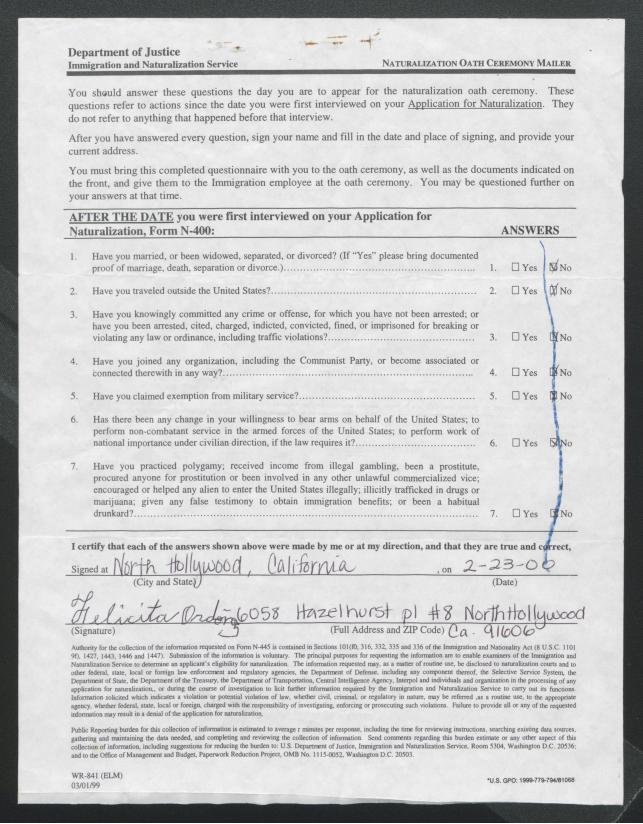 Department of Justice
Immigration and Naturalization Service NATURALIZATION OATH CEREMONY MAILER
You should answer these questions the day you are to appear for the naturalization oath ceremony. These
questions refer to actions since the date you were first interviewed on your Application for Naturalization. They
do not refer to anything that happened before that interview.
After you have answered every question, sign your name and fill in the date and place of signing, and provide your
current address.
You must bring this completed questionnaire with you to the oath ceremony, as well as the documents indicated on
the front, and give them to the Immigration employee at the oath ceremony. You may be questioned further on
your answers at that time.
AFTER THE DATE you were first interviewed on your Application for
Naturalization, Form N-400: ANSWERS
1. Have you married, or been widowed, separated, or divorced? (If "Yes" please bring documented
proof of marriage, death, separation or divorce.) 1. ☐ Yes ☒ No
2. Have you traveled outside the United States? 2. ☐ Yes ☒ No
3. Have you knowingly committed any crime or offense, for which you have not been arrested; or
have you been arrested, cited, charged, indicted, convicted, fined, or imprisoned for breaking or
violating any law or ordinance, including traffic violations? 3. ☐ Yes ☒ No
4. Have you joined any organization, including the Communist Party, or become associated or
connected therewith in any way? 4. ☐ Yes ☒ No
5. Have you claimed exemption from military service? 5. ☐ Yes ☒ No
6. Has there been any change in your willingness to bear arms on behalf of the United States; to
perform non-combatant service in the armed forces of the United States; to perform work of
national importance under civilian direction, if the law requires it? 6. ☐ Yes ☒ No
7. Have you practiced polygamy; received income from illegal gambling, been a prostitute,
procured anyone for prostitution or been involved in any other unlawful commercialized vice;
encouraged or helped any alien to enter the United States illegally; illicitly trafficked in drugs or
marijuana; given any false testimony to obtain immigration benefits; or been a habitual
drunkard? 7. ☐ Yes ☒ No
I certify that each of the answers shown above were made by me or at my direction, and that they are true and correct,
Signed at North Hollywood, California , on 2-23-00
(City and State) (Date)
Felicita 6058 Hazelhurst pl #8 North Hollywood
(Signature) (Full Address and ZIP Code) Ca. 91606
Authority for the collection of the information requested on Form N-445 is contained in Sections 101(f), 316, 332, 335 and 336 of the Immigration and Nationality Act (8 U.S.C. 1101
9f), 1427, 1443, 1446 and 1447). Submission of the information is voluntary. The principal purposes for requesting the information are to enable examiners of the Immigration and
Naturalization Service to determine an applicant's eligibility for naturalization. The information requested may, as a matter of routine use, be disclosed to naturalization courts and to
other federal, state, local or foreign law enforcement and regulatory agencies, the Department of Defense, including any component thereof, the Selective Service System, the
Department of State, the Department of the Treasury, the Department of Transportation, Central Intelligence Agency, Interpol and individuals and organization in the processing of any
application for naturalization,, or during the course of investigation to licit further information required by the Immigration and Naturalization Service to carry out its functions.
Information solicited which indicates a violation or potential violation of law, whether civil, criminal, or regulatory in nature, may be referred as a routine use, to the appropriate
agency, whether federal, state, local or foreign, charged with the responsibility of investigating, enforcing or prosecuting such violations. Failure to provide all or any of the requested
information may result in a denial of the application for naturalization.
Public Reporting burden for this collection of information is estimated to average r minutes per response, including the time for reviewing instructions, searching existing data sources,
gathering and maintaining the data needed, and completing and reviewing the collection of information. Send comments regarding this burden estimate or any other aspect of this
collection of information, including suggestions for reducing the burden to: U.S. Department of Justice, Immigration and Naturalization Service, Room 5304, Washington D.C. 20536;
and to the Office of Management and Budget, Paperwork Reduction Project, OMB No. 1115-0052, Washington D.C. 20503.
WR-841 (ELM)
03/01/99 *U.S. GPO: 1999-779-794/81068